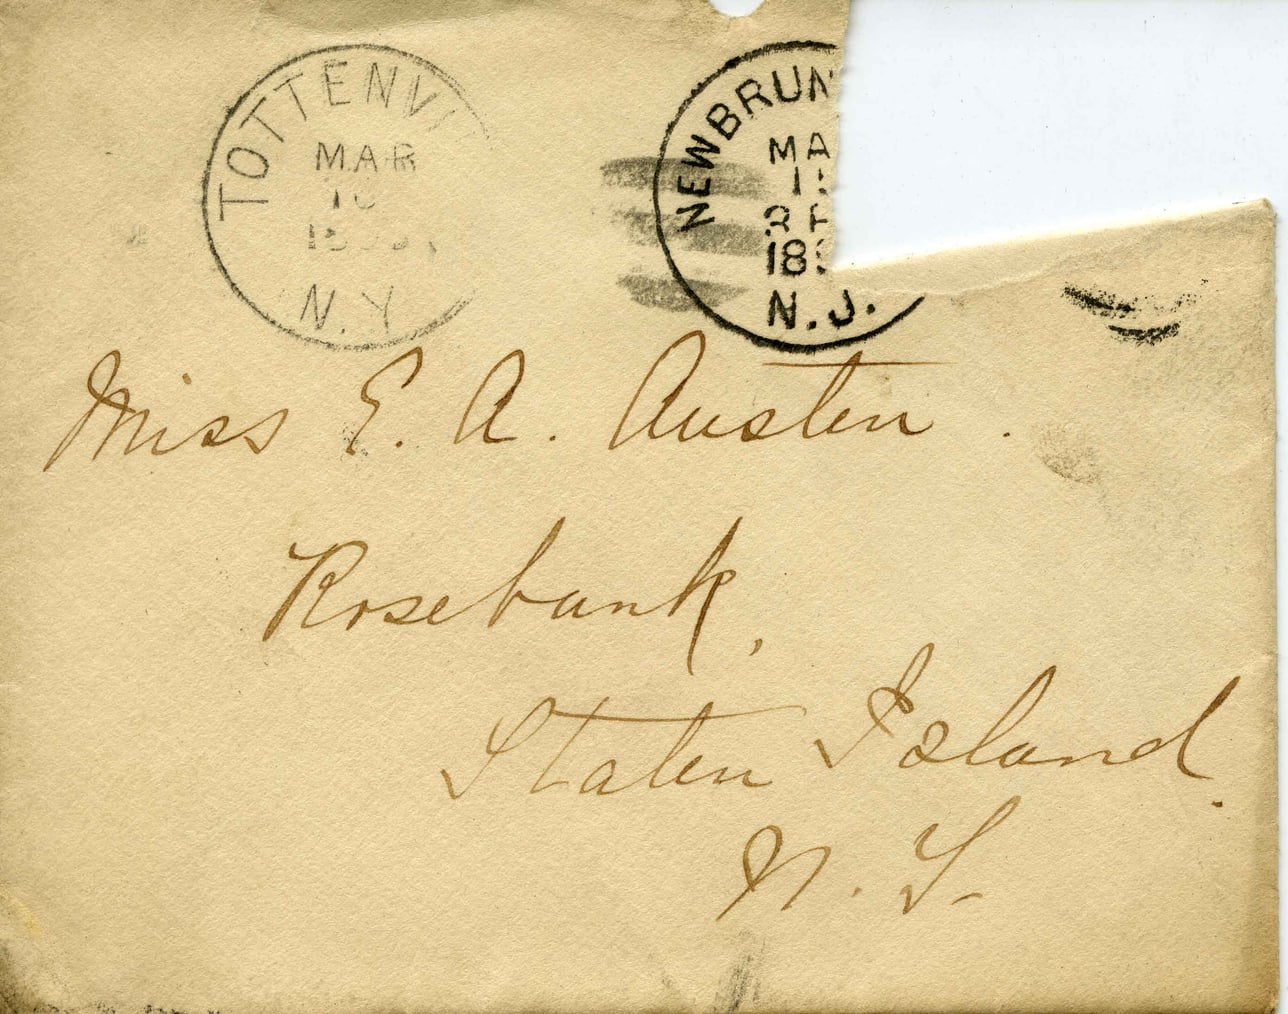 TOTTENVI
MAR
N.Y
NEW BRUN
MA
N.J.
Miss E. A. Austen.
Rosebank,
Staten Island.
N. Y.